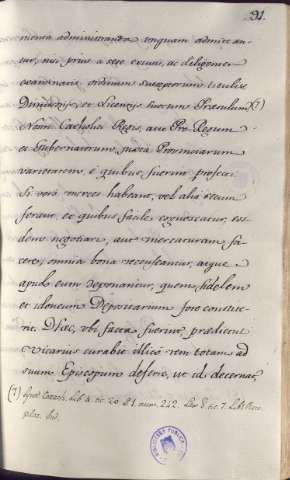 91.
menta administranda tanquam admittan-
tur, nisi prius a se exami, ac diligenter
examinatis ordinum suorum titulis
Dimissoriis, et Licentiis suorum Prælatorum (7)
Nostri Catholici Regis, aut Pro-Regum
et Gubernatorum, juxta Provinciarum
varietatem, e quibus fuerint profecti.
Si vero merces habeant, vel alia secum
ferant, ex quibus facile cognoscatur, eos-
dem negotiari, aut mercaturam fa-
cere, omnia bona recenseantur, atque
apud eum deponantur, quem fidelem
et idoneum Depositarium fore constite-
rit. Dhic, ubi facta fuerint, prædictus
Vicarius curabit illico rem totam ad
suum Episcopum deferre, ut id decernat,
(7) lib. 4. tit. 20. num. 212. 8. tit. 7. lib.